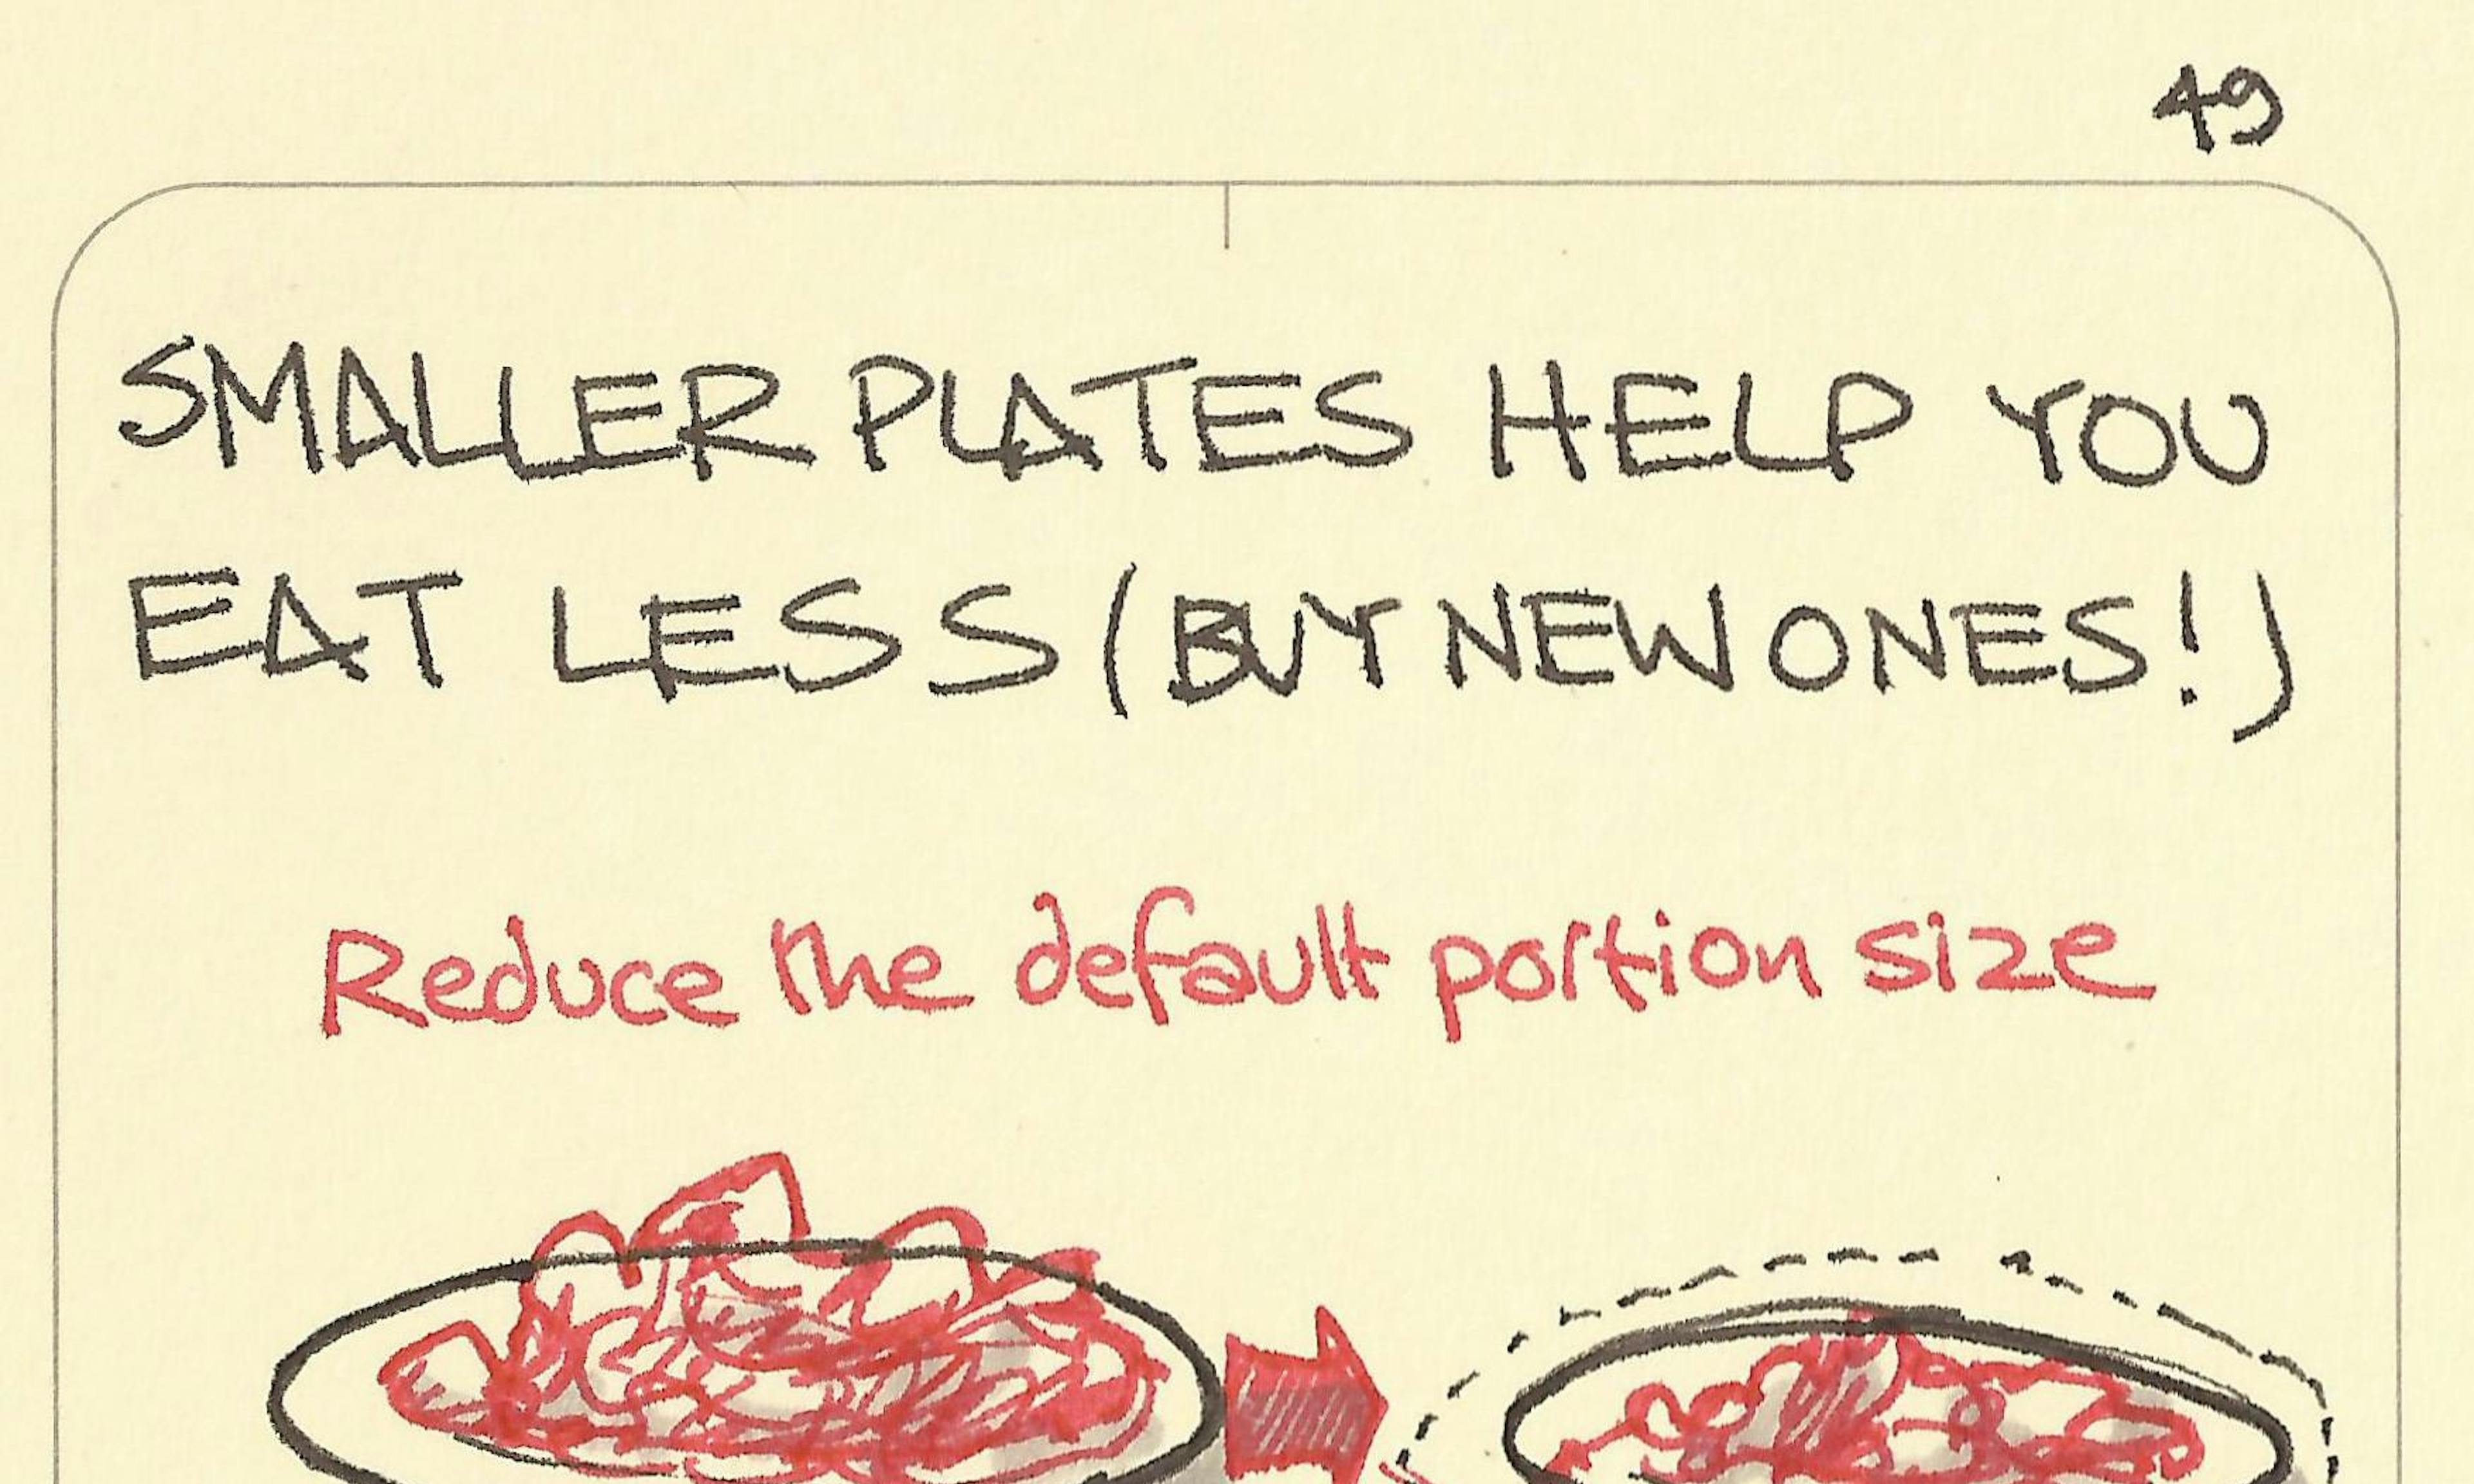 49
SMALLER PLATES HELP YOU
EAT LESS (BUY NEW ONES!)
Reduce the default portion size